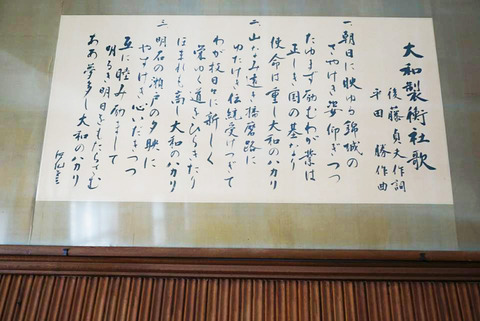 大和製衡社歌
後藤貞夫作詞
平田 勝作曲
一、朝日に映ゆる錦城の
さやけき姿仰ぎつつ
たゆまず励むわが業は
正しき国の基なり
使命は重し大和のハカリ
二、山なみ遠き播磨路に
ゆたけき伝統受けつぎて
わが技日々に新しく
栄ゆく道をひらきたり
ほまれも高し大和のハカリ
三、明石の瀬戸の夕映に
やすけき心いだきつつ
互に睦み励まして
明るき明日をもたらさむ
ああ夢多し大和のハカリ